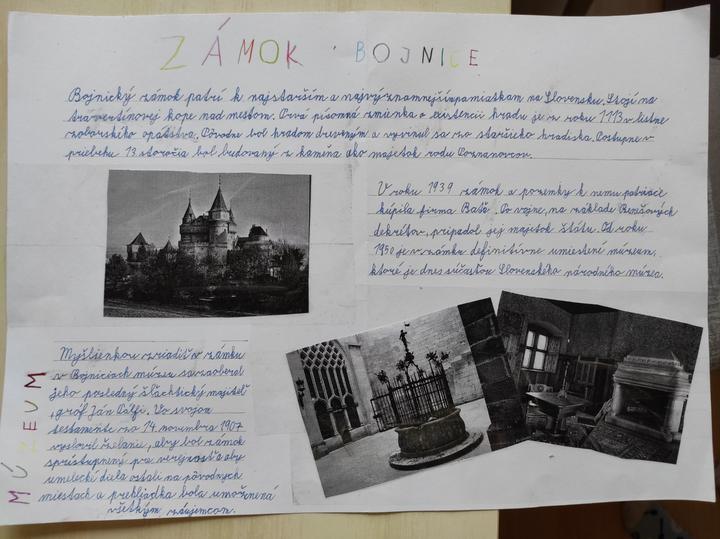 ZÁMOK BOJNICE
Bojnický zámok patrí k najstarším a najvýznamnejším pamiatkam na Slovensku. Stojí na
travertínovej kope nad mestom. Prvá písomná zmienka o existencii hradu je z roku 1113 v listine
zoborského opátstva. Pôvodne bol hradom dreveným a vyvinul sa zo staršieho hradiska. Postupne v
priebehu 13. storočia bol budovaný z kameňa ako majetok rodu Poznanovcov.
V roku 1939 zámok a pozemky k nemu patriace
kúpila firma Baťa. Po vojne, na základe Benešových
dekrétov, pripadol jej majetok štátu. Od roku
1950 je v zámku definitívne umiestené múzeum,
ktoré je dnes súčasťou Slovenského národného múzea.
MÚZEUM
Myšlienkou zriadiť v zámku
v Bojniciach múzeum sa zaoberal
jeho posledný šľachtický majiteľ
, gróf Ján Pálfi. Vo svojom
testamente zo 14. novembra 1907
vyslovil želanie, aby bol zámok
sprístupnený pre verejnosť a aby
umelecké diela ostali na pôvodných
miestach a prehliadka bola umožnená
všetkým záujemcom.